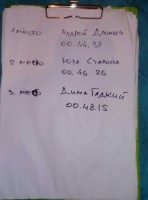 1 место Андрей Дронов
00.44.38
2 место Юра Старков
00.46.26
3 место Дима Гладкий
00.48.15